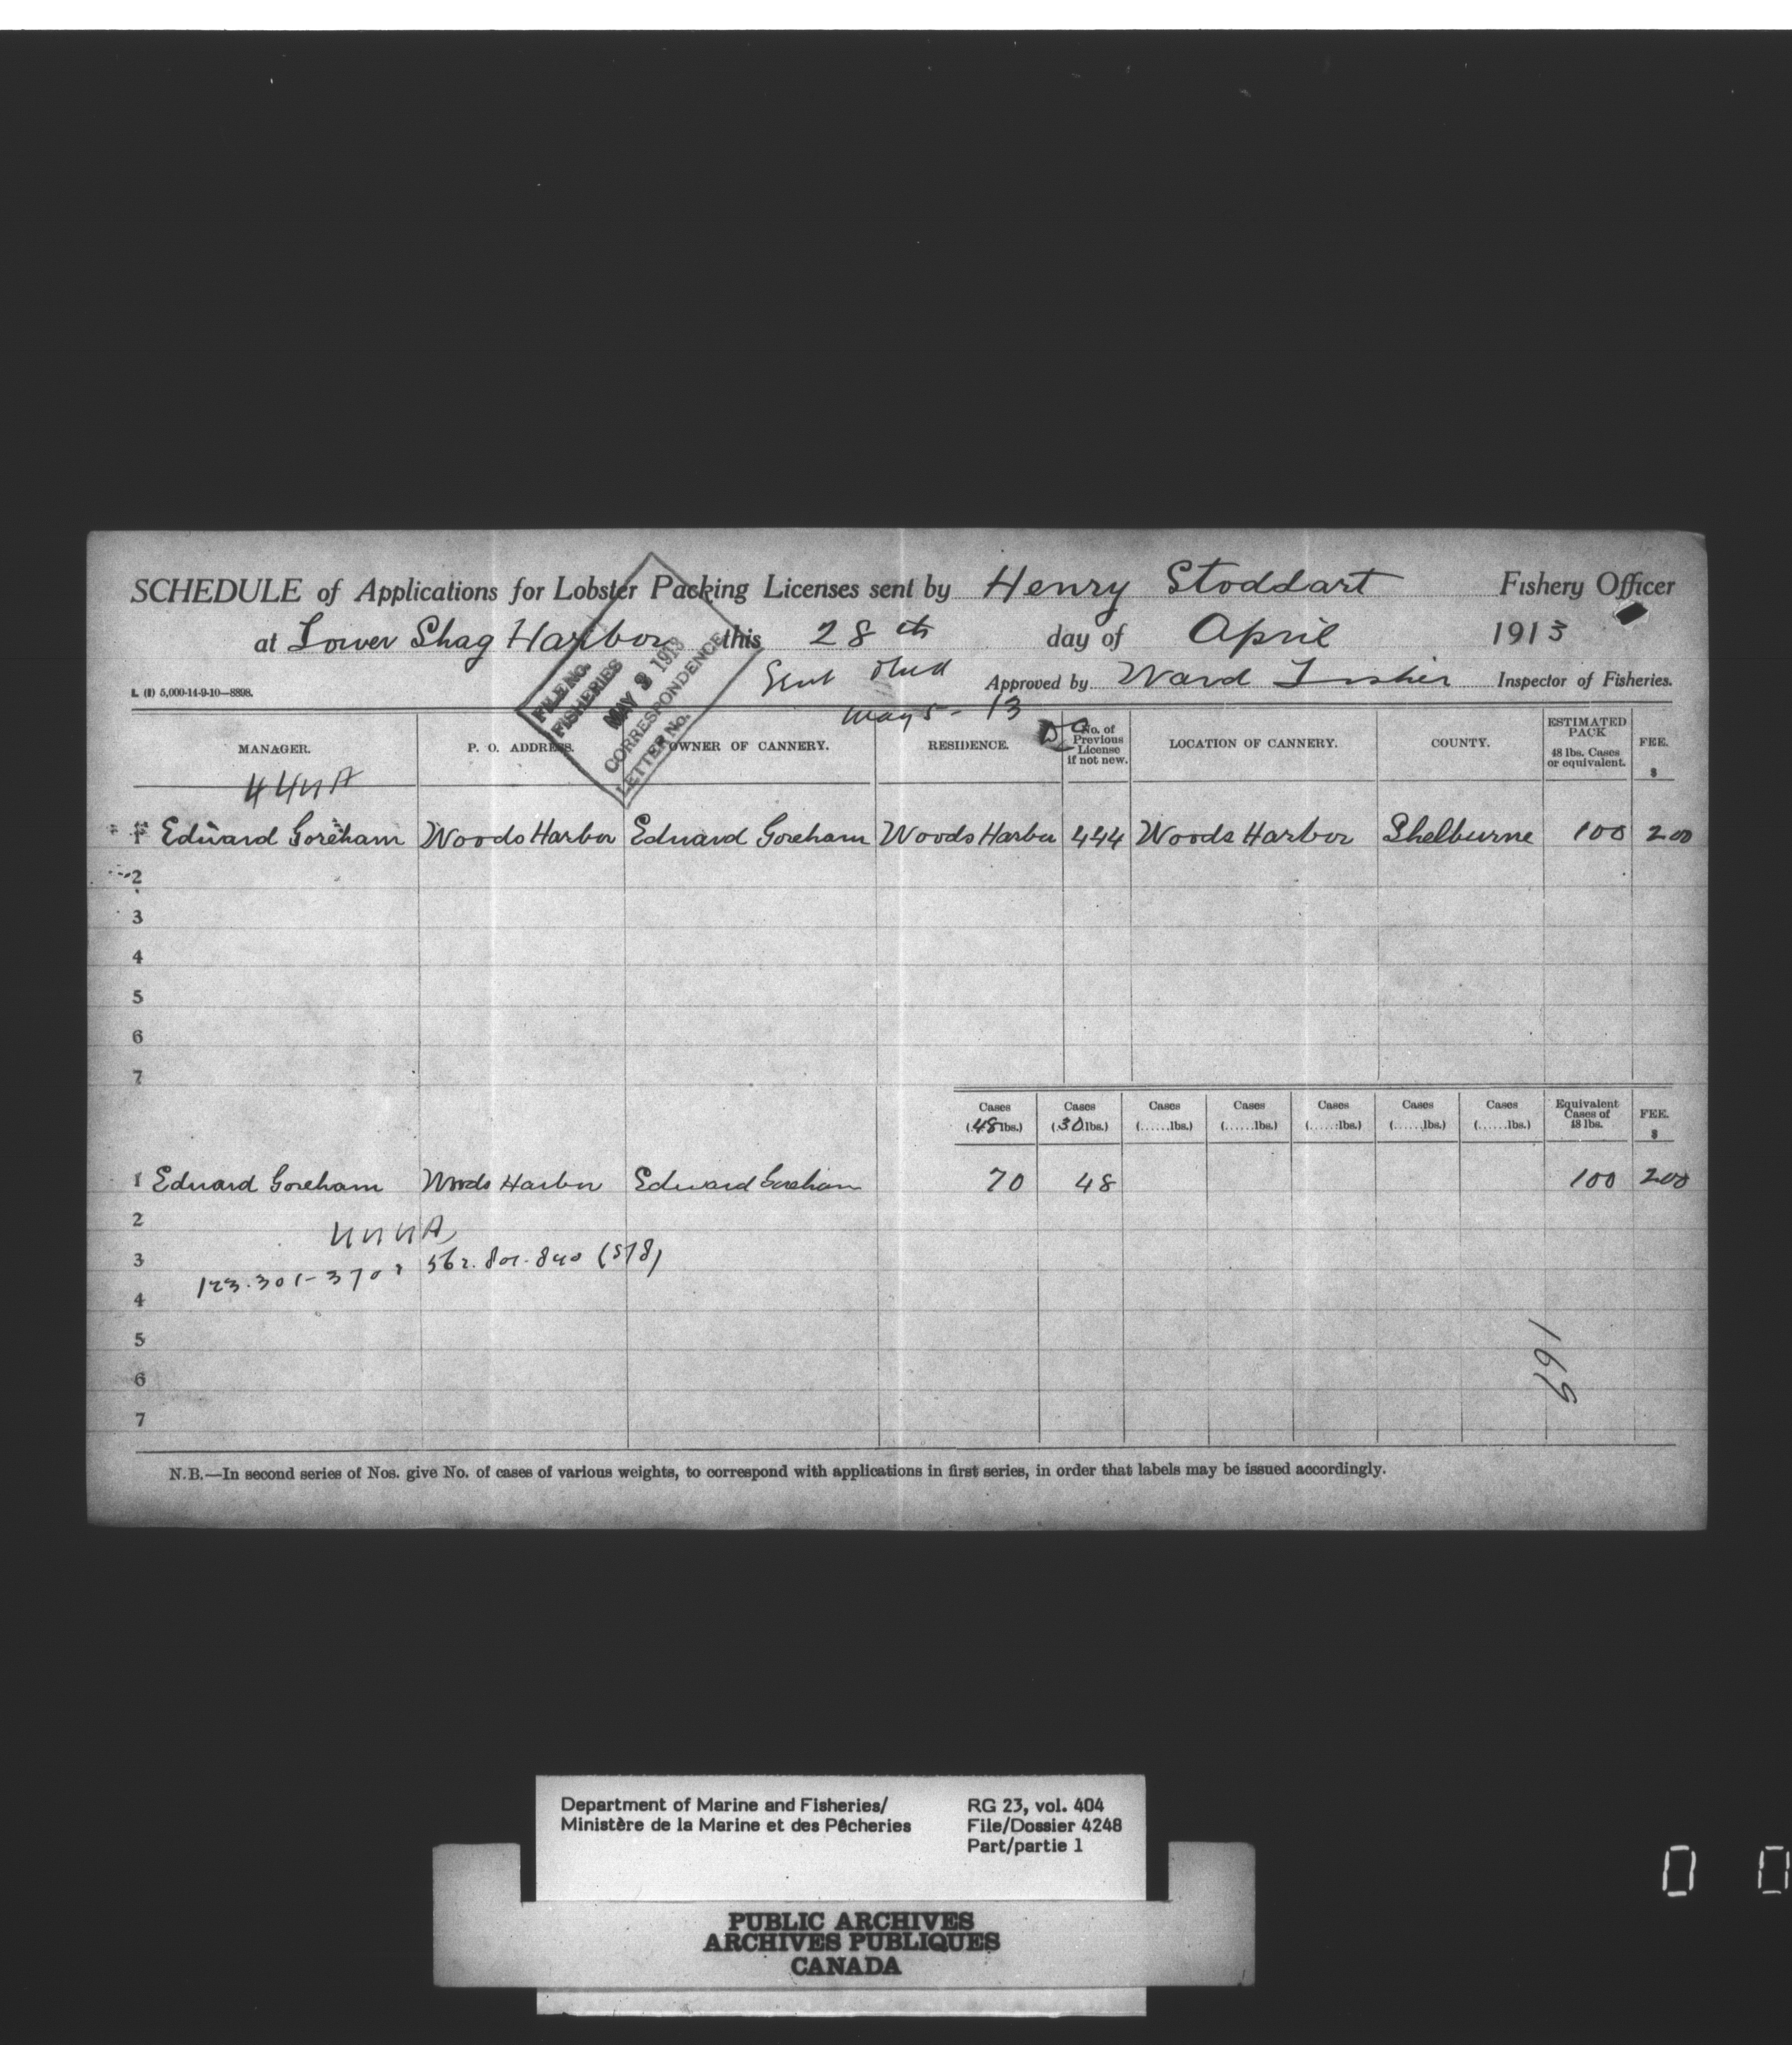 SCHEDULE of Applications for Lobster Packing Licenses sent by Henry Stoddart Fishery Officer
at Lower Shag Harbor this 28th day of April 1913
L. (l) 5,000-14-9-10—8898.
Sent
Approved by Ward Fisher Inspector of Fisheries.
May 5 - 13
FILE No.
FISHERIES
MAY 2 1913
CORRESPONDENCE
LETTER No.
MANAGER. P. O. ADDRESS. OWNER OF CANNERY. RESIDENCE. No. of Previous License if not new. LOCATION OF CANNERY. COUNTY. ESTIMATED PACK 48 lbs. Cases or equivalent. FEE. $
444A
1 Edward Goreham Woods Harbor Edward Goreham Woods Harbor 444 Woods Harbor Shelburne 100 200
2
3
4
5
6
7
Cases (48 lbs.) Cases (30 lbs.) Cases (......lbs.) Cases (......lbs.) Cases (......lbs.) Cases (......lbs.) Cases (......lbs.) Equivalent Cases of 48 lbs. FEE. $
1 Edward Goreham Woods Harbor Edward Goreham 70 48 100 200
2 444A
3 123.301-370 562.801-840 (578)
4
5
6
7
169
N.B.—In second series of Nos. give No. of cases of various weights, to correspond with applications in first series, in order that labels may be issued accordingly.
Department of Marine and Fisheries/ RG 23, vol. 404
Ministère de la Marine et des Pêcheries File/Dossier 4248
Part/partie 1
PUBLIC ARCHIVES
ARCHIVES PUBLIQUES
CANADA
0 0